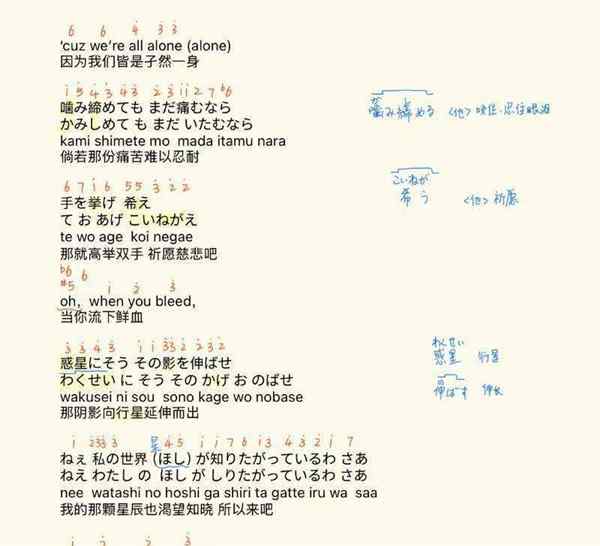 6 6 4 3 3
'cuz we're all alone (alone)
因为我们皆是孑然一身
i 5 4 3 4 3 2 3 i i 2 7 b6
噛み締めても まだ痛むなら
かみしめて も まだ いたむなら
kami shimete mo mada itamu nara
倘若那份痛苦难以忍耐
噛み締める <他> 咬住·忍住眼泪
6 7 i 6 5 5 3 2 2
手を挙げ 希え
て お あげ こいねがえ
te wo age koi negae
那就高举双手 祈愿慈悲吧
こいねが
希う <他> 祈愿
b6 6
#5 i 2 3
oh, when you bleed,
当你流下鲜血
3 3 4 3 i i 3 3 2 2 3 2
惑星にそう その影を伸ばせ
わくせい に そう その かげ お のばせ
wakusei ni sou sono kage wo nobase
那阴影向行星延伸而出
わくせい
惑星 行星
の
伸ばす 伸长
i 2 3 3 3 星 4 5 i i 7 6 i 3 4 3 2 i 7
ねぇ 私の世界 (ほし) が知りたがっているわ さあ
ねえ わたし の ほし が しりたがっているわ さあ
nee watashi no hoshi ga shiri ta gatte iru wa saa
我的那颗星辰也渴望知晓 所以来吧